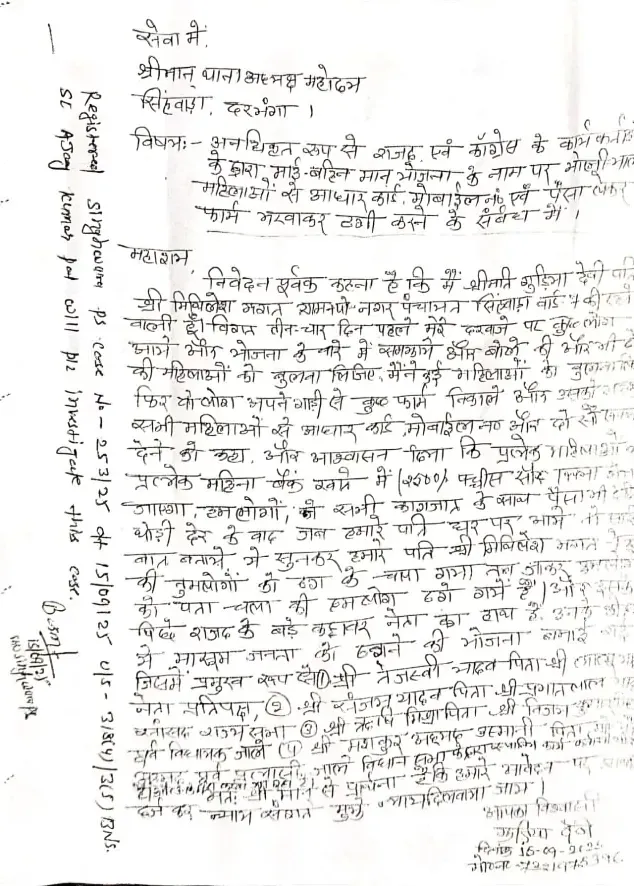 सेवा में,
श्रीमान् थाना अध्यक्ष महोदय
सिंहवाड़ा, दरभंगा ।
विषय:- अनधिकृत रूप से राजद, एवं कॉंग्रेस के कार्यकर्ता
के द्वारा माई-बहिन मान योजना के नाम पर भोली
महिलाओं से आधार कार्ड, मोबाईल नं० एवं पैसा लेकर
फार्म भरवाकर ठगी करने के संबंध में ।
महाशय,
निवेदन पूर्वक कहना है कि मैं श्रीमति गुड़िया देवी पति
श्री मिथिलेश भगत ग्राम+पो- नगर पंचायत सिंहवाड़ा वार्ड-7 की
वाली हूँ। विगत तीन-चार दिन पहले मेरे दरवाजे पर कुछ लोग
आये और योजना के बारे में समझाये और बोले की और भी
की महिलाओं को बुलवा लिजिए, मैंने कई महिलाओं को
फिर वे लोग अपने गाड़ी से कुछ फार्म निकाले और उसको
सभी महिलाओं से आधार कार्ड, मोबाईल नं० और दो सौ
देने को कहा, और आश्वासन दिया कि प्रत्येक महिलाओं के
प्रत्येक महिना बैंक खाते में (२५००) पच्चीस सौ
जाएगा, हमलोगों ने सभी कागजात के साथ पैसा भी
थोड़ी देर के बाद जब हमारे पति घर पर आये तो
बात बताये ये सुनकर हमारे पति श्री मिथिलेश भगत ने
की तुमलोगों को ठग के चला गया तब जाकर हमलोग
को पता चला की हमलोग ठगे गये हैं। और इसके
पिछे राजद के बड़े कद्दावर नेता का हाथ है, उनके
से मासूम जनता को ठगने की योजना बनाई गई
जिसमें प्रमुख रूप से ① श्री तेजस्वी यादव पिता श्री लालू
नेता प्रतिपक्ष, ② श्री संजय यादव पिता श्री प्रभात लाल
सांसद राज्य सभा ③ श्री ऋषि मिश्रा पिता श्री विजय
पूर्व विधायक जाले ④ श्री मशकूर अहमद उस्मानी पिता
पूर्व प्रत्याशी, जाले विधान सभा के द्वारा
अतः श्रीमान से प्रार्थना है कि हमारे आवेदन पर
दर्ज कर न्याय संगत मुझे न्याय दिलवाया जाय ।
आपका विश्वासी
गुड़िया देवी
दिनांक 15-09-2025
Registered Singhwara ps case No - 253/25 dt 15/09/25 U/s - 318(4)/3(5) BNS.
SI Ajay kumar pal will plz investigate this case.